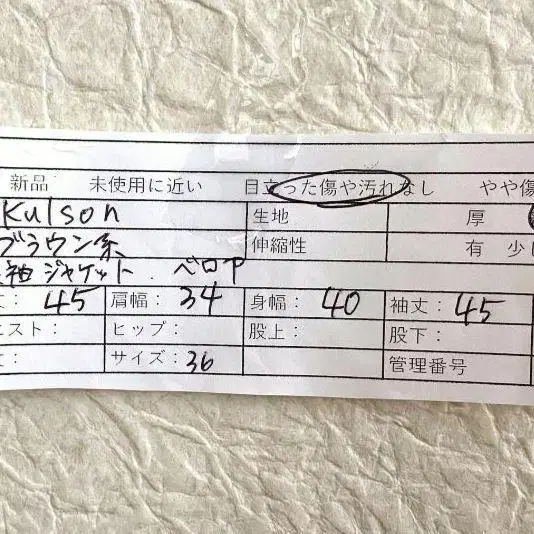 新品 未使用に近い 目立った傷や汚れなし やや傷
Kulson 生地 厚
ブラウン系 伸縮性 有 少し
袖ジャケット ベロア
丈：45 肩幅：34 身幅：40 袖丈：45
エスト： ヒップ： 股上： 股下：
：サイズ：36 管理番号